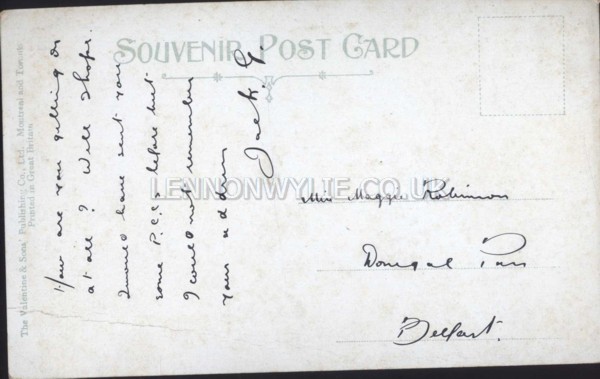 SOUVENIR POST CARD
How are you getting on
at all? Well I hope.
I would have sent you
some P.C.s before but
I could not remember
your address
Jack G.
Miss Maggie Robinson
Donegal Pass
Belfast.
LENNONWYLIE.CO.UK
The Valentine & Sons' Publishing Co., Ltd., Montreal and Toronto
Printed in Great Britain